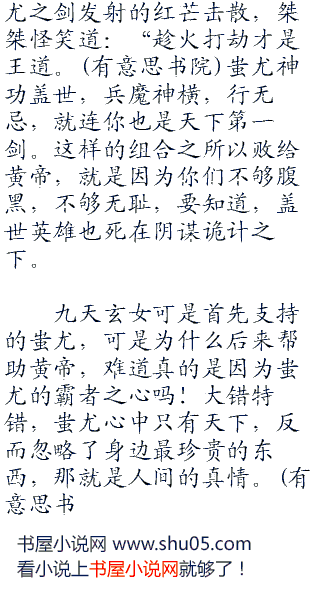 尤之剑发射的红芒击散，桀
桀怪笑道：“趁火打劫才是
王道。(有意思书院)蚩尤神
功盖世，兵魔神横，行无
忌，就连你也是天下第一
剑。这样的组合之所以败给
黄帝，就是因为你们不够腹
黑，不够无耻，要知道，盖
世英雄也死在阴谋诡计之
下。
九天玄女可是首先支持
的蚩尤，可是为什么后来帮
助黄帝，难道真的是因为蚩
尤的霸者之心吗！大错特
错，蚩尤心中只有天下，反
而忽略了身边最珍贵的东
西，那就是人间的真情。(有
意思书
书屋小说网 www.shu05.com
看小说上书屋小说网就够了！